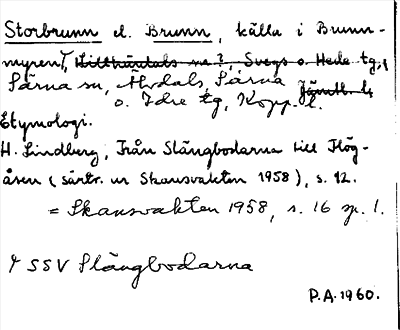 Storbrunn el. Brunn, källa i Brunn-
myren, Lillhärdals sn?, Svegs o. Hede tg,
Särna sn, Älvdals, Särna Jämtl. l.
o. Idre tg, Kopp. l.
Etymologi.
H. Lindberg, Från Slängbodarna till Hög-
åsen (särtr. ur Skansvakten 1958), s. 12.
= Skansvakten 1958, s. 16 sp. 1.
SSV Slängbodarna
P.A. 1960.